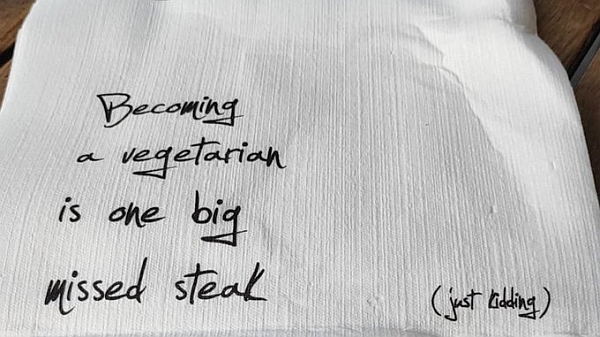 Becoming
a vegetarian
is one big
missed steak
(just kidding)